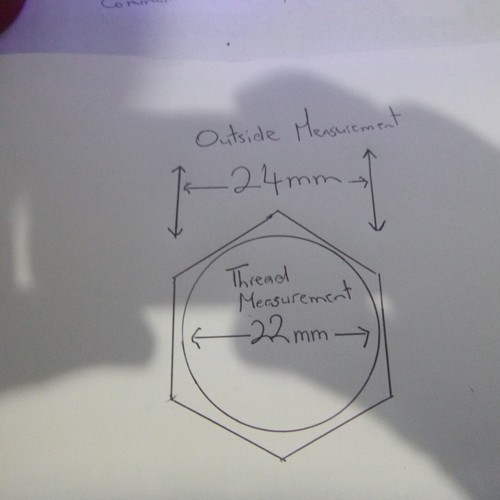 Outside Measurement
24mm
Thread
Measurement
22mm